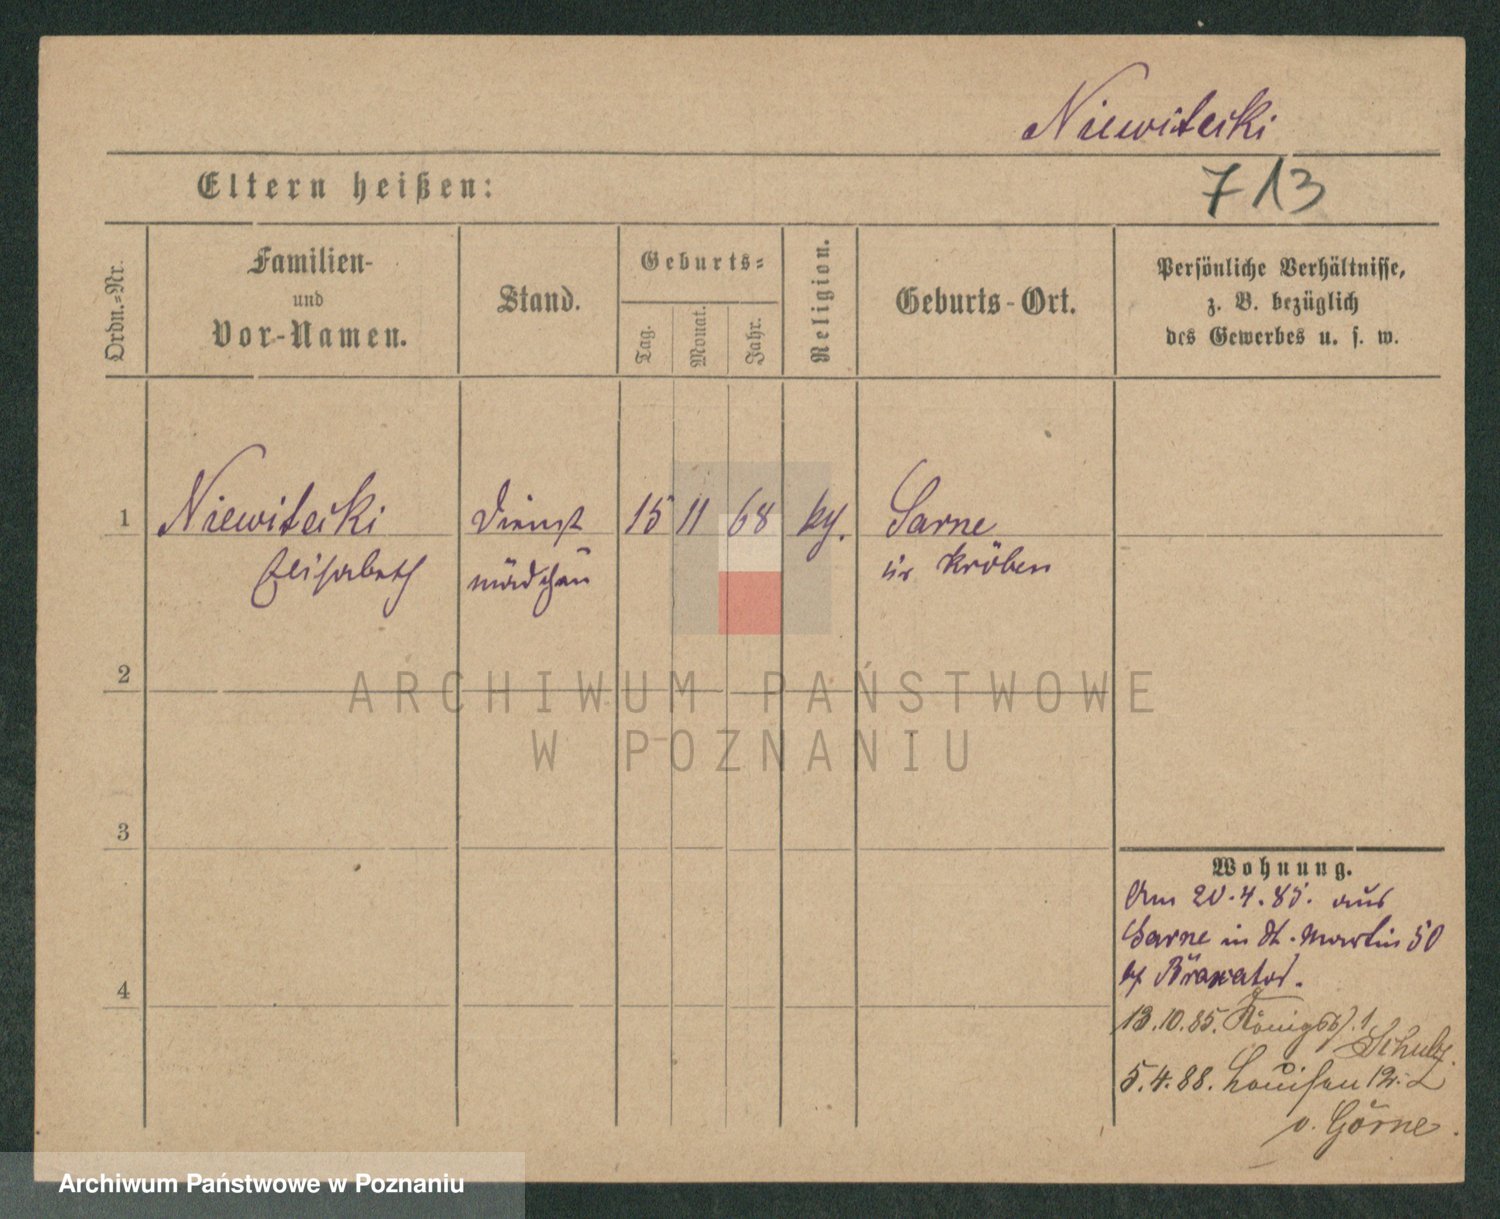 Niewitecki
713
Eltern heißen:
Ordn.-Nr.
Familien-
und
Vor-Namen.
Stand.
Geburts-
Tag.
Monat.
Jahr.
Religion.
Geburts-Ort.
Persönliche Verhältnisse,
z. B. bezüglich
des Gewerbes u. s. w.
1 Niewitecki Dienst 15 11 68 Sarne
Elisabeth mädchen Kröben
2
ARCHIWUM PAŃSTWOWE
W POZNANIU
3
4
Wohnung.
Am 20.4.85. aus
Sarne in St. Martin 50
13.10.85. Königspl. 1
Schulz.
5.4.88. Louisen 12.
v. Görne.
Archiwum Państwowe w Poznaniu